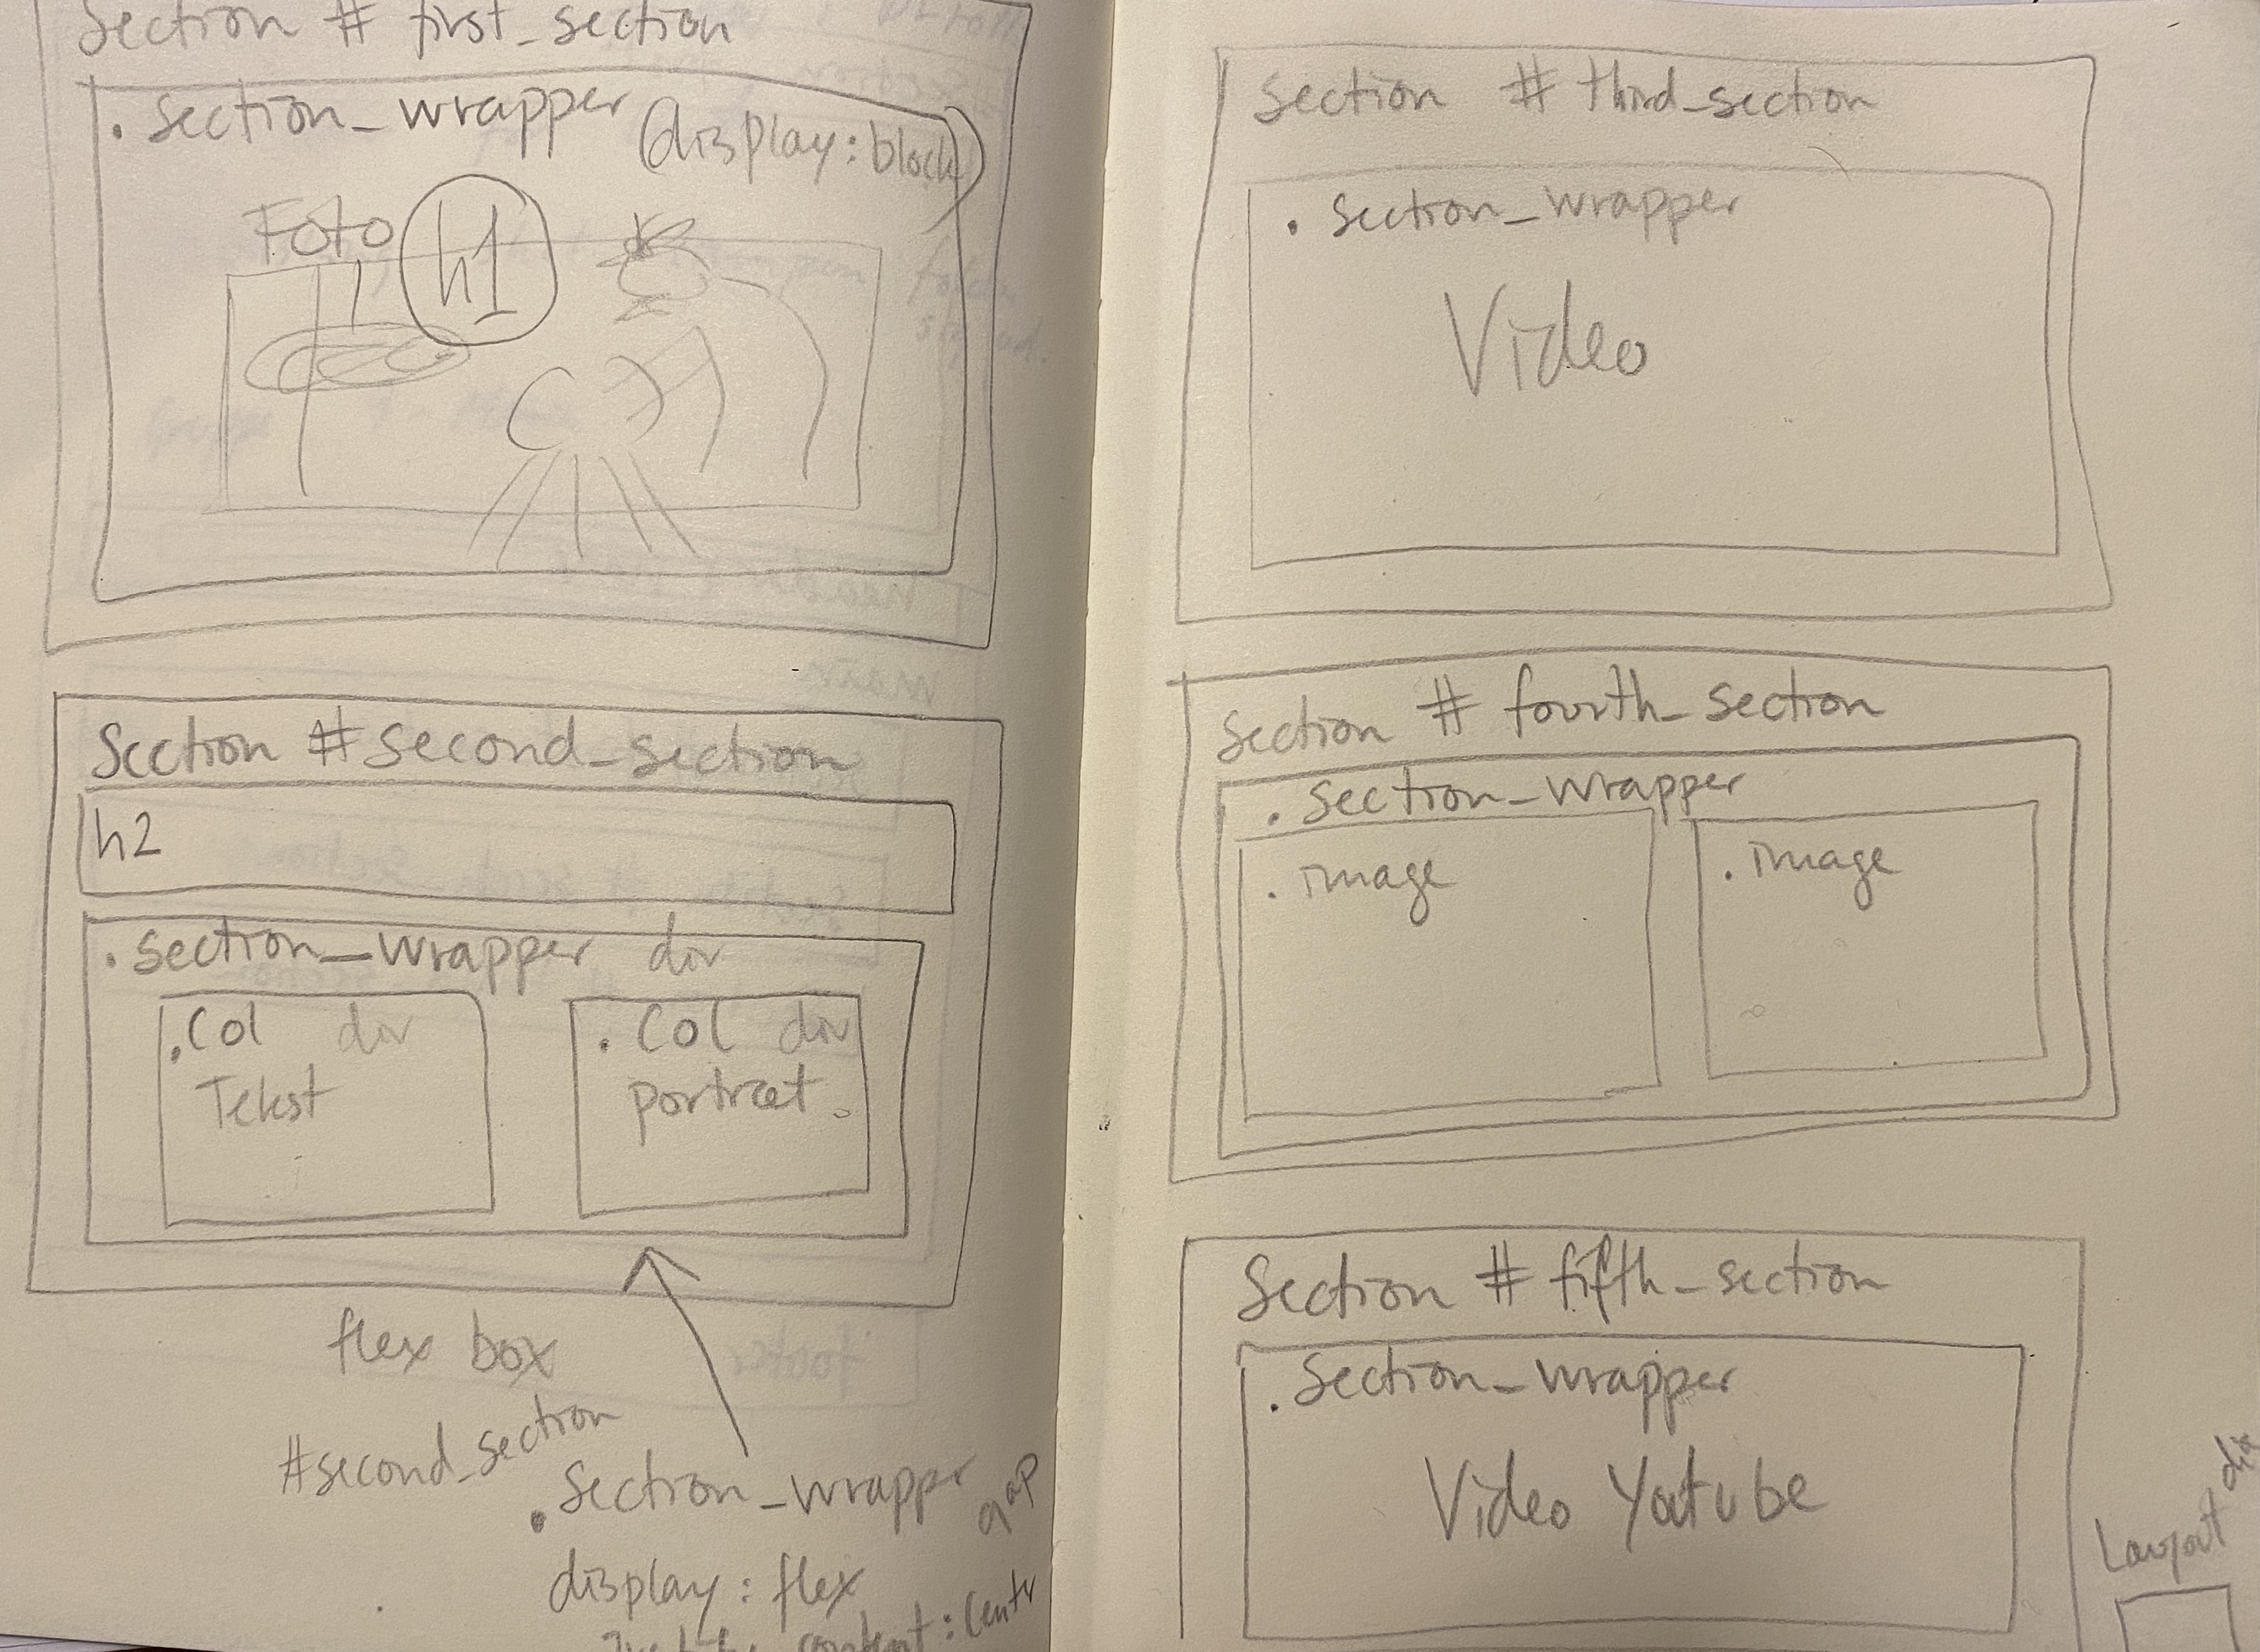 Section # first_section
. section_wrapper (display: block)
Foto h1
Section #second_section
h2
. section_wrapper div
.Col div
Tekst
. Col div
portræt.
flex box
#second_section
. Section_wrapper gap
display: flex
content: Centr
Section # third_section
. section_wrapper
Video
Section # fourth_section
. section_wrapper
. image
. image
Section # fifth_section
. Section_wrapper
Video Yotube
Layout